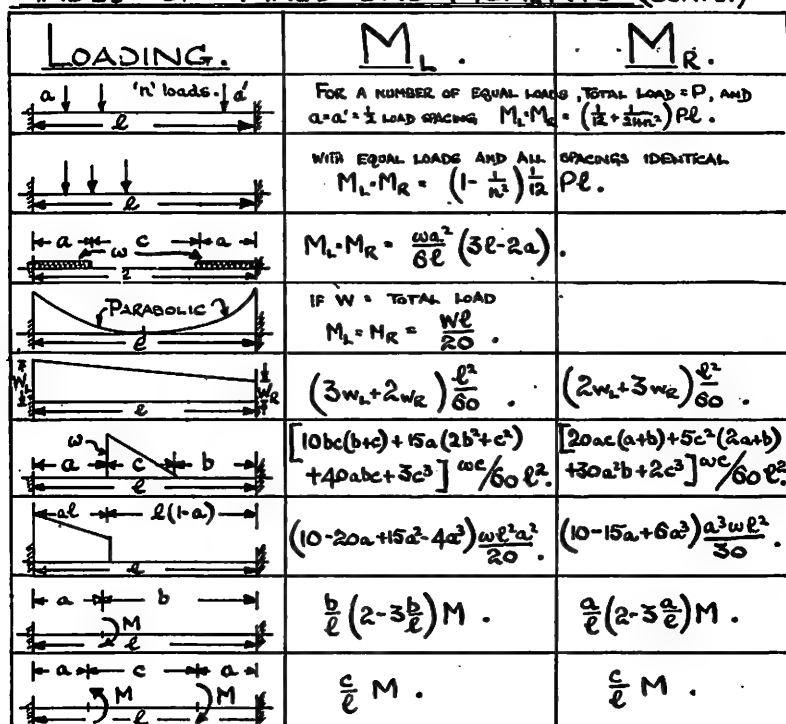 (CONTD.)
LOADING. M_L. M_R.
a 'n' loads. a'
l
FOR A NUMBER OF EQUAL LOADS, TOTAL LOAD = P, AND
a=a'=½ LOAD SPACING M_L=M_R = (1/12 + 1/24n²) Pl.
l
WITH EQUAL LOADS AND ALL SPACINGS IDENTICAL
M_L=M_R = (1 - 1/n²) 1/12 Pl.
a ω c a
M_L=M_R = ωa²/6l (3l-2a).
PARABOLIC
l
IF W = TOTAL LOAD
M_L = M_R = Wl/20.
W_L W_R
l
(3w_L+2w_R) l²/60. (2w_L+3w_R) l²/60.
ω
a c b
l
[10bc(b+c) + 15a(2b²+c²) [20ac(a+b)+5c²(2a+b)
+40abc+3c³] ωc/60l². +30a²b+2c³] ωc/60l².
al l(1-a)
l
(10-20a+15a²-4a³) ωl²a²/20. (10-15a+6a²) a³ωl²/30.
a b
M
l
b/l (2-3b/l) M. a/l (2-3a/l) M.
a c a
M M
l
c/l M. c/l M.